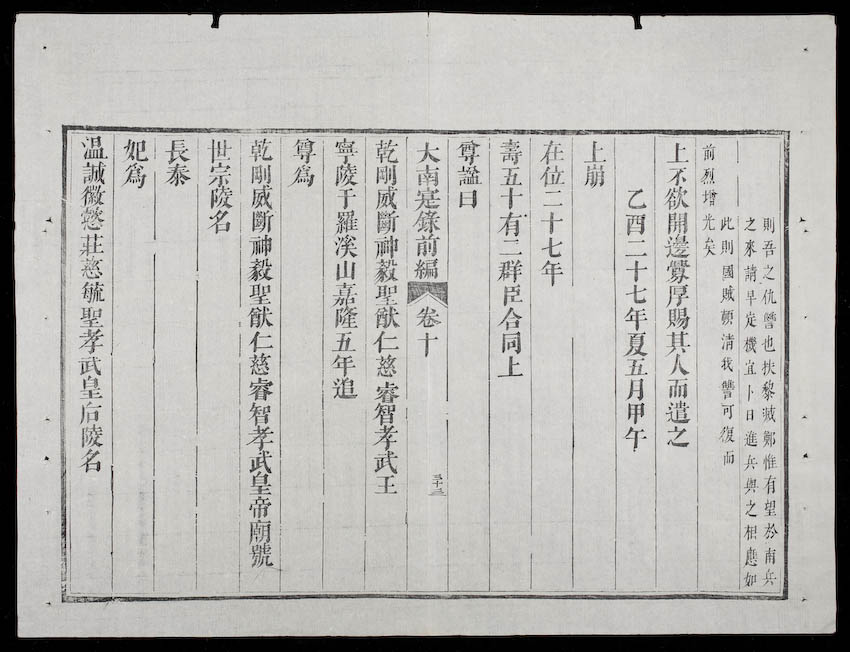 則吾之仇讐也扶黎滅鄭惟有望於南兵
之來請早定機宜卜日進兵與之相應如
此則國賊頓清我讐可復而
前烈增光矣
上不欲開邊釁厚賜其人而遣之
乙酉二十七年夏五月甲午
上崩
在位二十七年
壽五十有二群臣合同上
尊謚曰
大南寔錄前編 卷十 三十三
乾剛威斷神毅聖猷仁慈睿智孝武王
寧陵于羅溪山嘉隆五年追
尊爲
乾剛威斷神毅聖猷仁慈睿智孝武皇帝廟號
世宗陵名
長泰
妃爲
温誠徽懿莊慈毓聖孝武皇后陵名